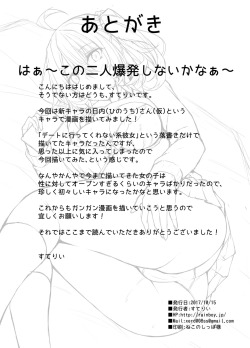 あとがき
はぁ～この二人爆発しないかなぁ～
こんにちははじめまして、
そうでない方はどうも、すてりいです。
今回は新キャラの日内(ひのうち)さん(仮)という
キャラで漫画を描いてみました！
「デートに行ってくれない系彼女」という落書きだけで
描いてたキャラだったんですが、
思った以上に気に入ってしまったので
今回描いてみた、という感じです。
なんやかんやで今まで描いてきた女の子は
性に対してオープンすぎるくらいのキャラばかりだったので、
珍しく初々しいキャラになったかなと思います。
これからもガンガン漫画を描いていこうと思うので
宜しくお願いします！
それではここまで読んでいただきありがとうございました！
すてりい
■発行日:2017/10/15
■発行者:すてりい
■印刷:ねこのしっぽ様